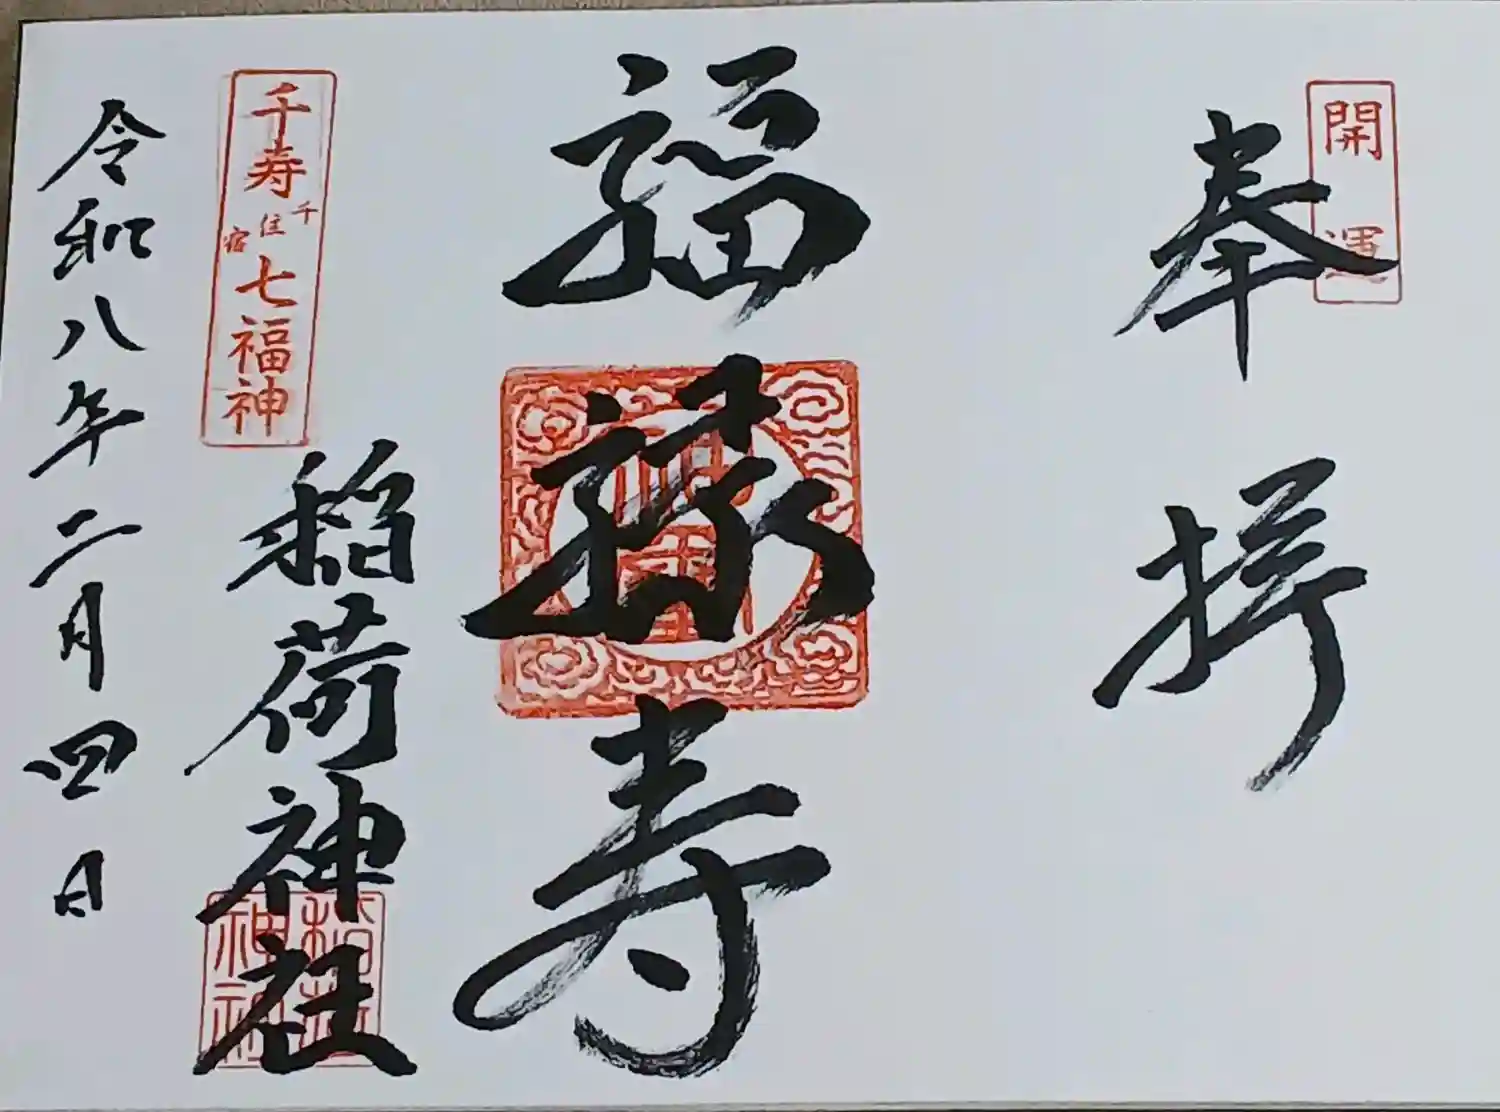 開運
奉拝
福禄寿
千寿
千住宿
七福神
稲荷神社
令和八年二月四日